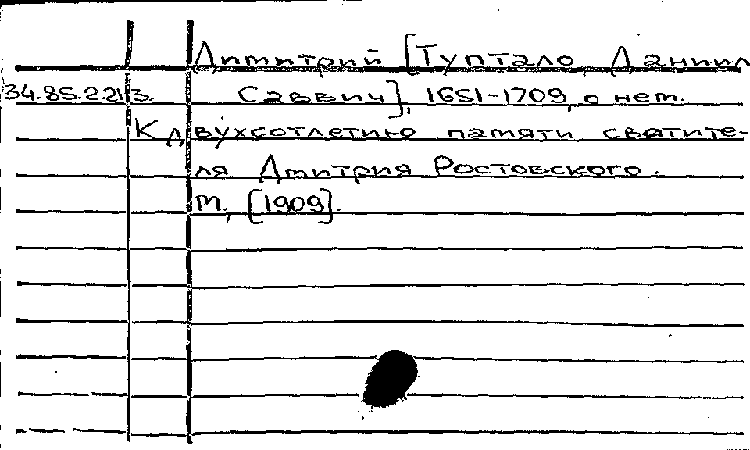 Димитрий [Туптало, Даниил
34.85.221/3. Саввич], 1651-1709, о нем.
К двухсотлетию памяти святите-
ля Дмитрия Ростовского.
М., [1909].